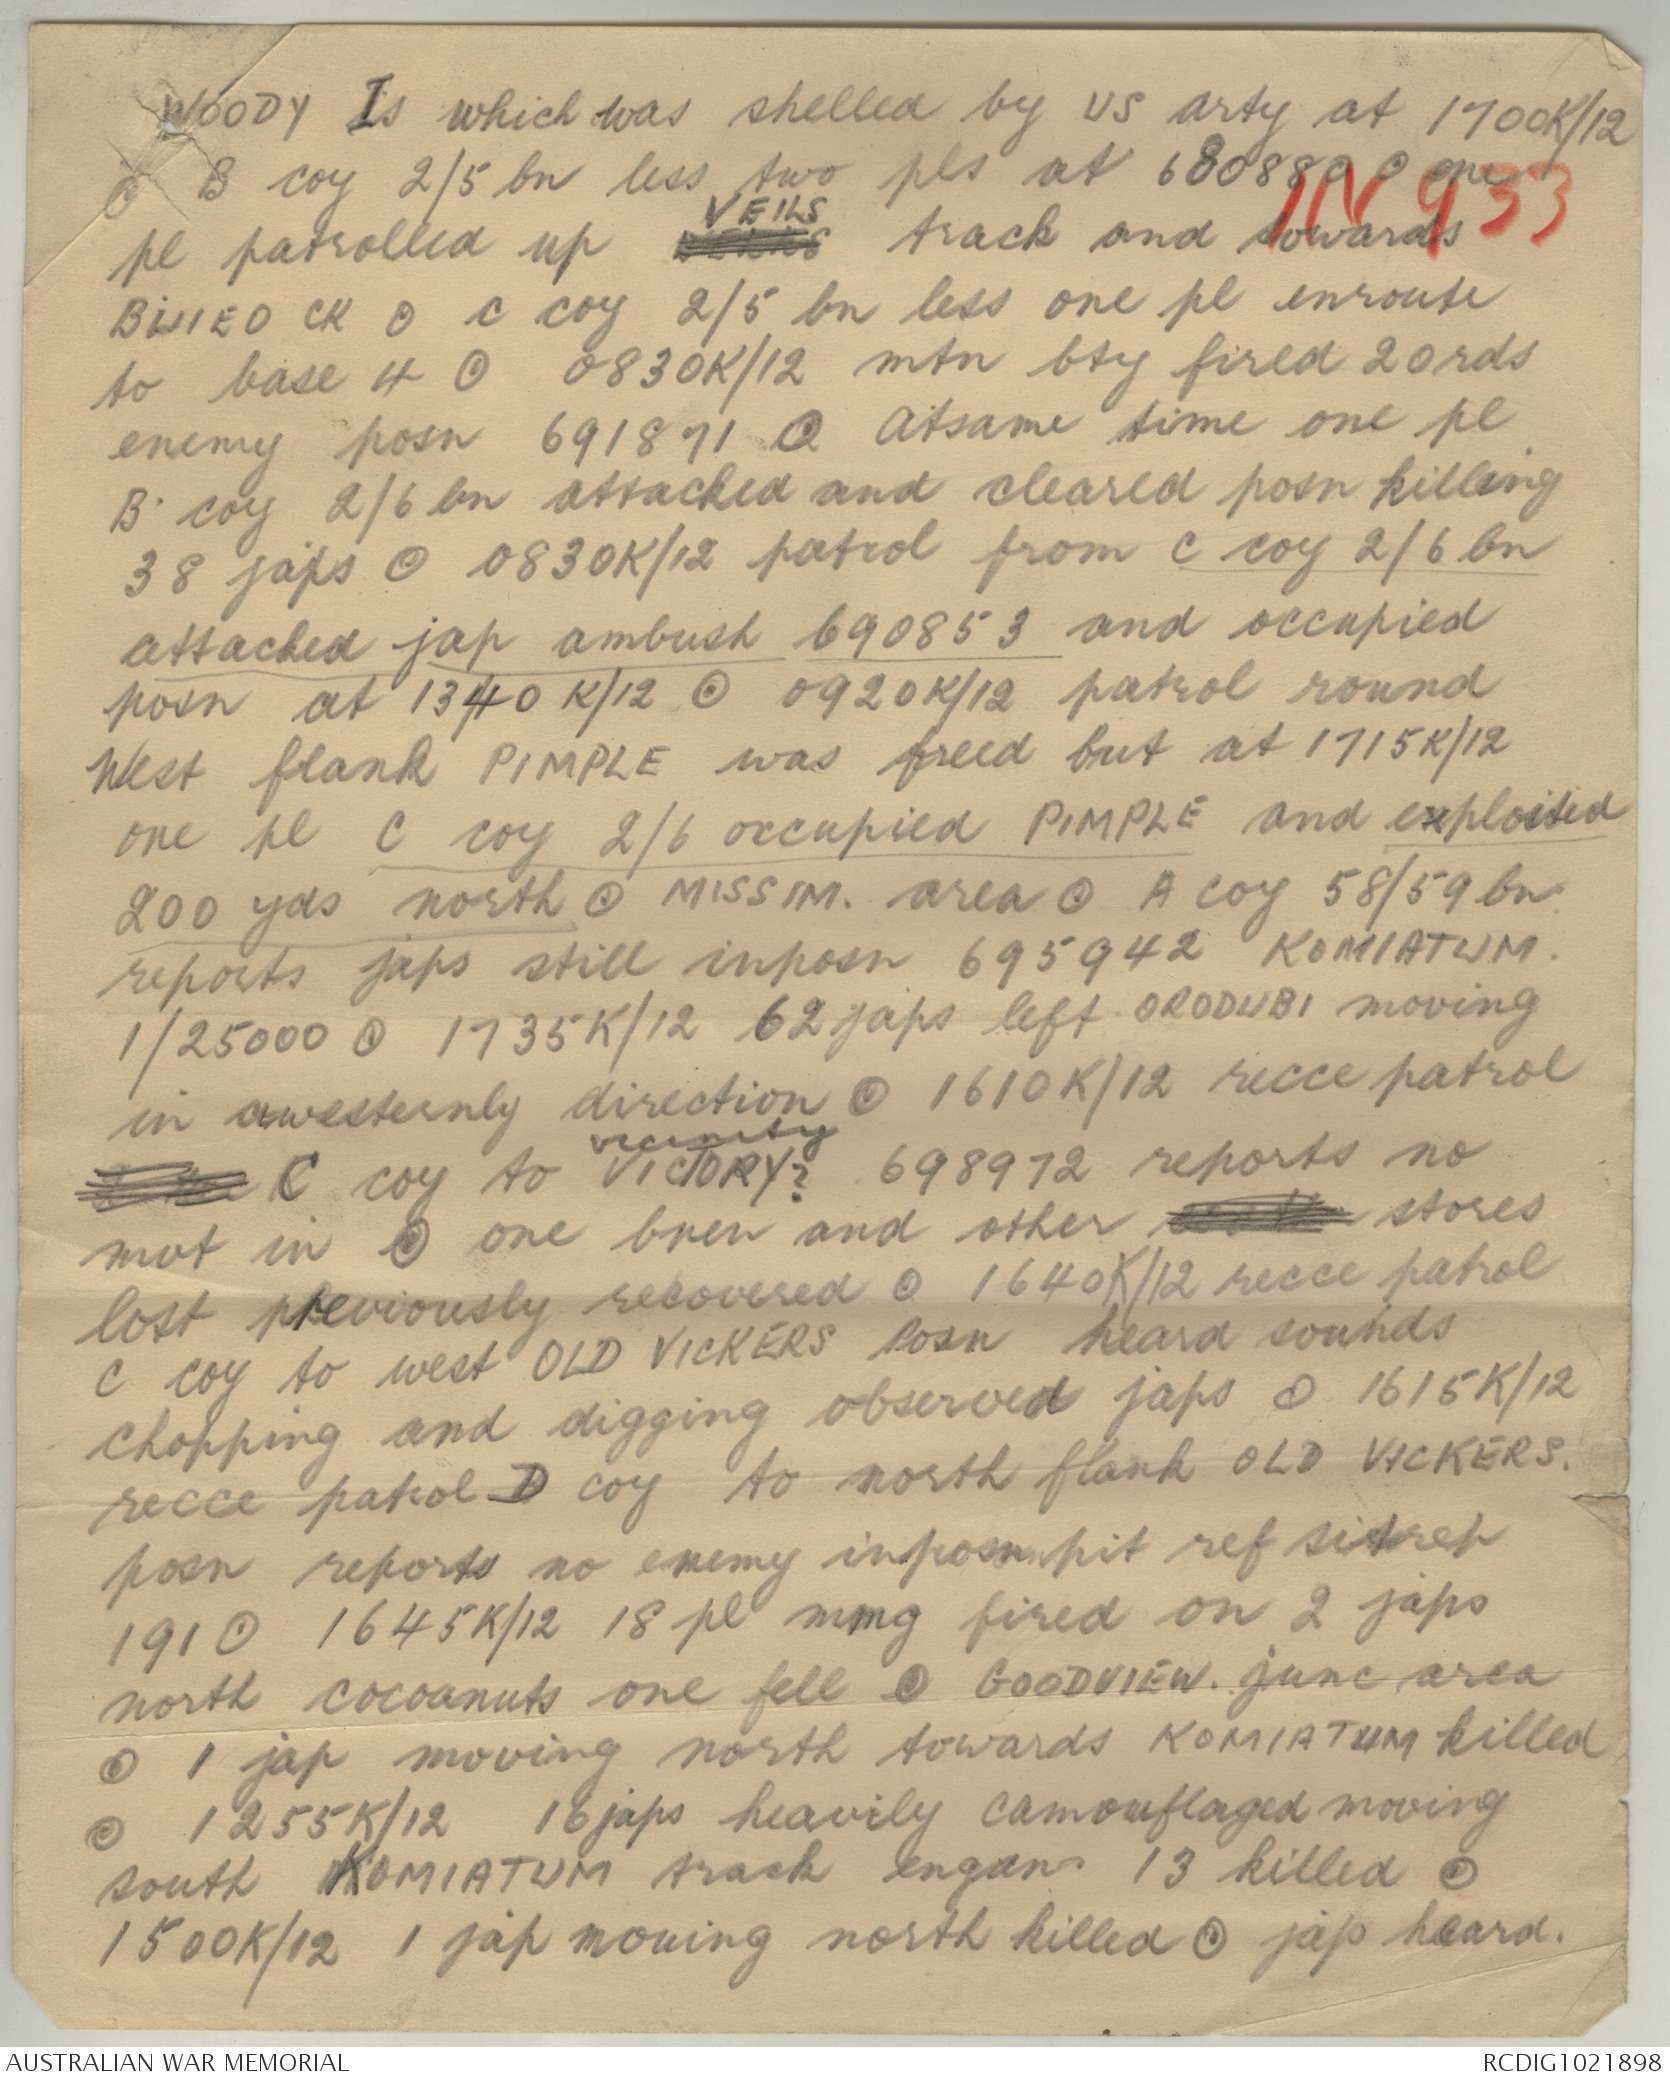 WOODY Is which was shelled by US arty at 1700K/12
⊙ B coy 2/5 bn less two pls at 680880 ⊙ one
IN 933
VEILS
pl patrolled up track and towards
BUIEO CK ⊙ C coy 2/5 bn less one pl enroute
to base 4 ⊙ 0830K/12 mtn bty fired 20 rds
enemy posn 691871 ⊙ At same time one pl
B coy 2/6 bn attacked and cleared posn killing
38 japs ⊙ 0830K/12 patrol from C coy 2/6 bn
attacked jap ambush 690853 and occupied
posn at 1340K/12 ⊙ 0920K/12 patrol round
West flank PIMPLE was freed but at 1715K/12
one pl C coy 2/6 occupied PIMPLE and exploited
200 yds north ⊙ MISSIM. area ⊙ A coy 58/59 bn
reports japs still inposn 695942 KOMIATUM.
1/25000 ⊙ 1735K/12 62 japs left ORODUBI moving
in a westernly direction ⊙ 1610K/12 recce patrol
vicinity
C coy to VICTORY? 698972 reports no
mvt in ⊙ one bren and other stores
lost previously recovered ⊙ 1640K/12 recce patrol
C coy to west OLD VICKERS Posn heard sounds
chopping and digging observed japs ⊙ 1615K/12
recce patrol D coy to north flank OLD VICKERS.
posn reports no enemy inposn pit ref sitrep
191 ⊙ 1645K/12 18 pl mmg fired on 2 japs
north cocoanuts one fell ⊙ GOODVIEW. junc area
⊙ 1 jap moving north towards KOMIATUM killed
⊙ 1255K/12 16 japs heavily camouflaged moving
south KOMIATUM track engan. 13 killed ⊙
1500K/12 1 jap moving north killed ⊙ jap heard.
AUSTRALIAN WAR MEMORIAL
RCDIG1021898